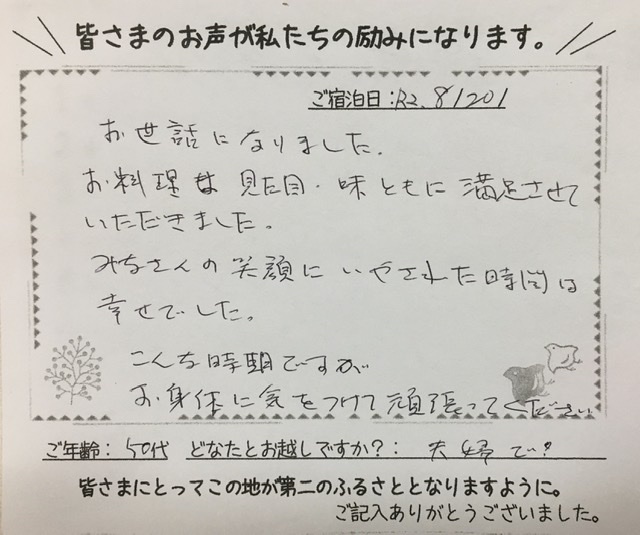 皆さまのお声が私たちの励みになります。
ご宿泊日:R2. 8/20
お世話になりました。
お料理は見た目・味ともに満足させて
いただきました。
みなさんの笑顔にいやされた時間は
幸せでした。
こんな時期ですが
お身体に気をつけて頑張ってください
ご年齢:50代 どなたとお越しですか?:夫婦で
皆さまにとってこの地が第二のふるさととなりますように。
ご記入ありがとうございました。